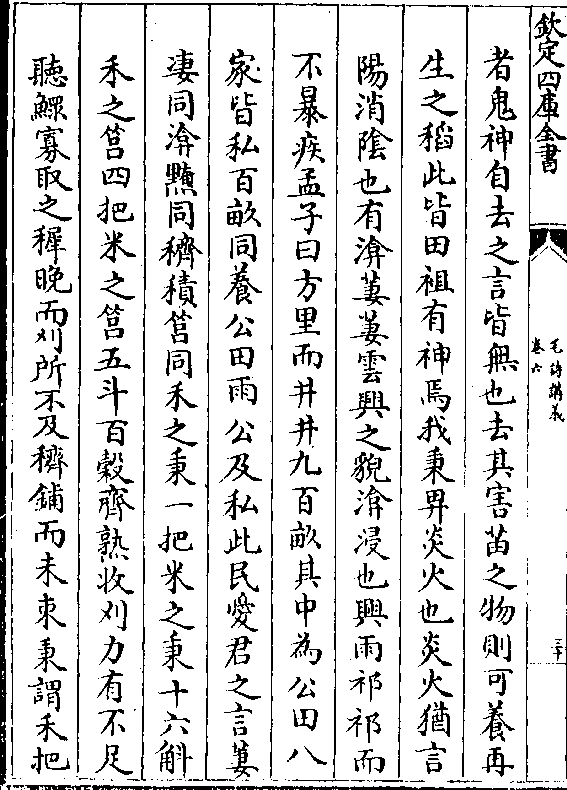 欽定四庫全書
毛詩講義
卷六
三十
者鬼神自去之言皆無也去其害苗之物則可養再
生之稻此皆田祖有神焉我秉畀炎火也炎火猶言
陽消陰也有渰萋萋雲興之貌渰浸也興雨祁祁而
不暴疾孟子曰方里而井井九百畝其中為公田八
家皆私百畝同養公田雨公及私此民愛君之言萋
凄同渰黤同穧積筥同禾之秉一把米之秉十六斛
禾之筥四把米之筥五斗百穀齊熟收刈力有不足
聽鰥寡取之穉晚而刈所不及穧鋪而未束秉謂禾把